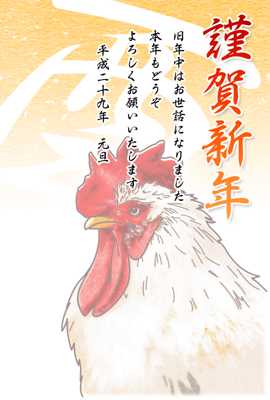 謹賀新年
旧年中はお世話になりました
本年もどうぞ
よろしくお願いいたします
平成二十九年　元旦